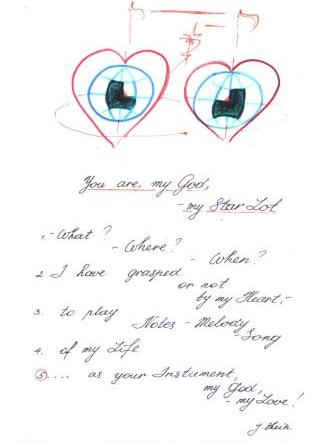 You are, my God,
- my Star Lot
1. - What?
- Where?
- When?
2 I have grasped
or not
by my Heart, -
3. to play
Notes - Melody
- Song
4. of my Life
5.... as your Instument,
my God,
- my Love!
J. Shein